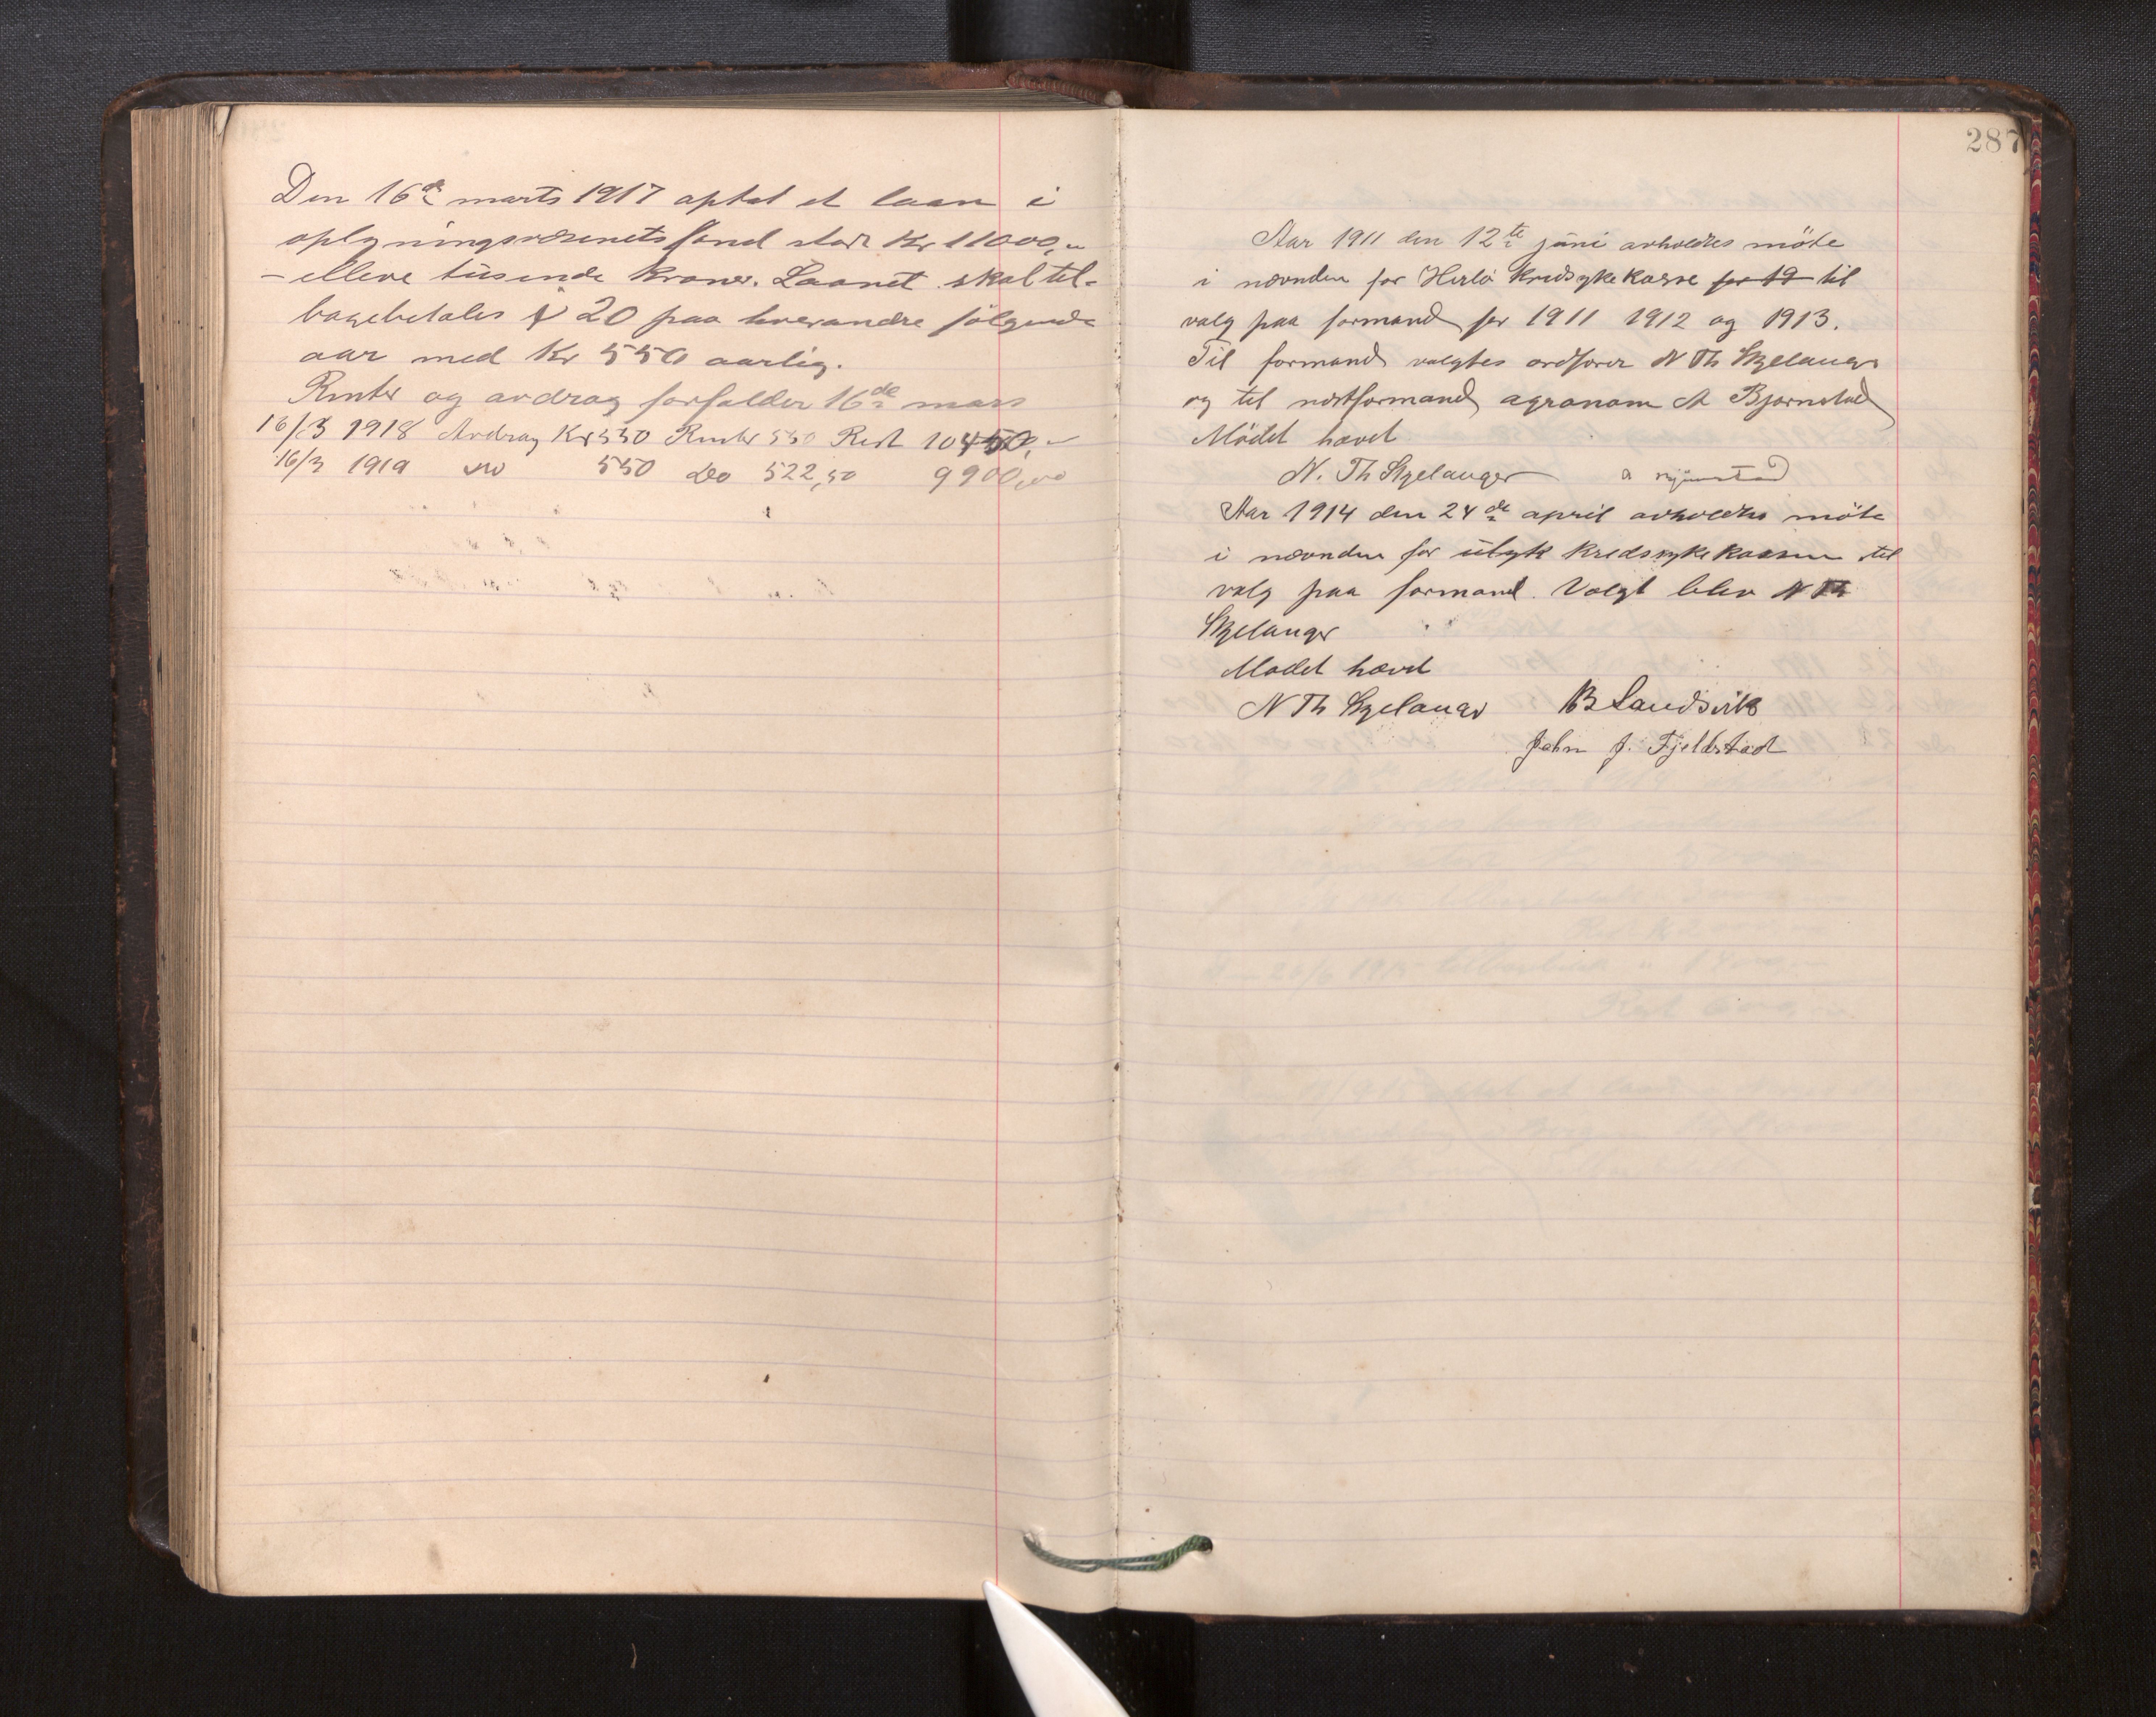 Den 16de marts 1917 optat et laan i
oplysningsvæsenets fond stort Kr 11000,-
- elleve tusende kroner. Laanet skal til-
bagebetales i 20 paa hverandre følgende
aar med Kr 550 aarlig.
Renter og avdrag forfalder 16de mars
16/3 1918 Avdrag Kr 550 Renter 550 Rest 10450,-
16/3 1919 do 550 do 522,50 9900,00
287
Aar 1911 den 12te juni avholdtes möte
i nævnden for Herlø Kredsykekasse for 19 til
valg paa formand for 1911 1912 og 1913.
Til formand valgtes ordfører N Th Skjelanger
og til næstformand agronom A Bjørnstad
Mödet hævet
N. Th Skjelanger A Bjørnstad
Aar 1914 den 24de april avholdtes möte
i nævnden for kredssykekassen til
valg paa formand. Valgt blev N Th
Skjelanger
Mødet hævet
N Th Skjelanger B Landsvik
John J. Fjeldstad